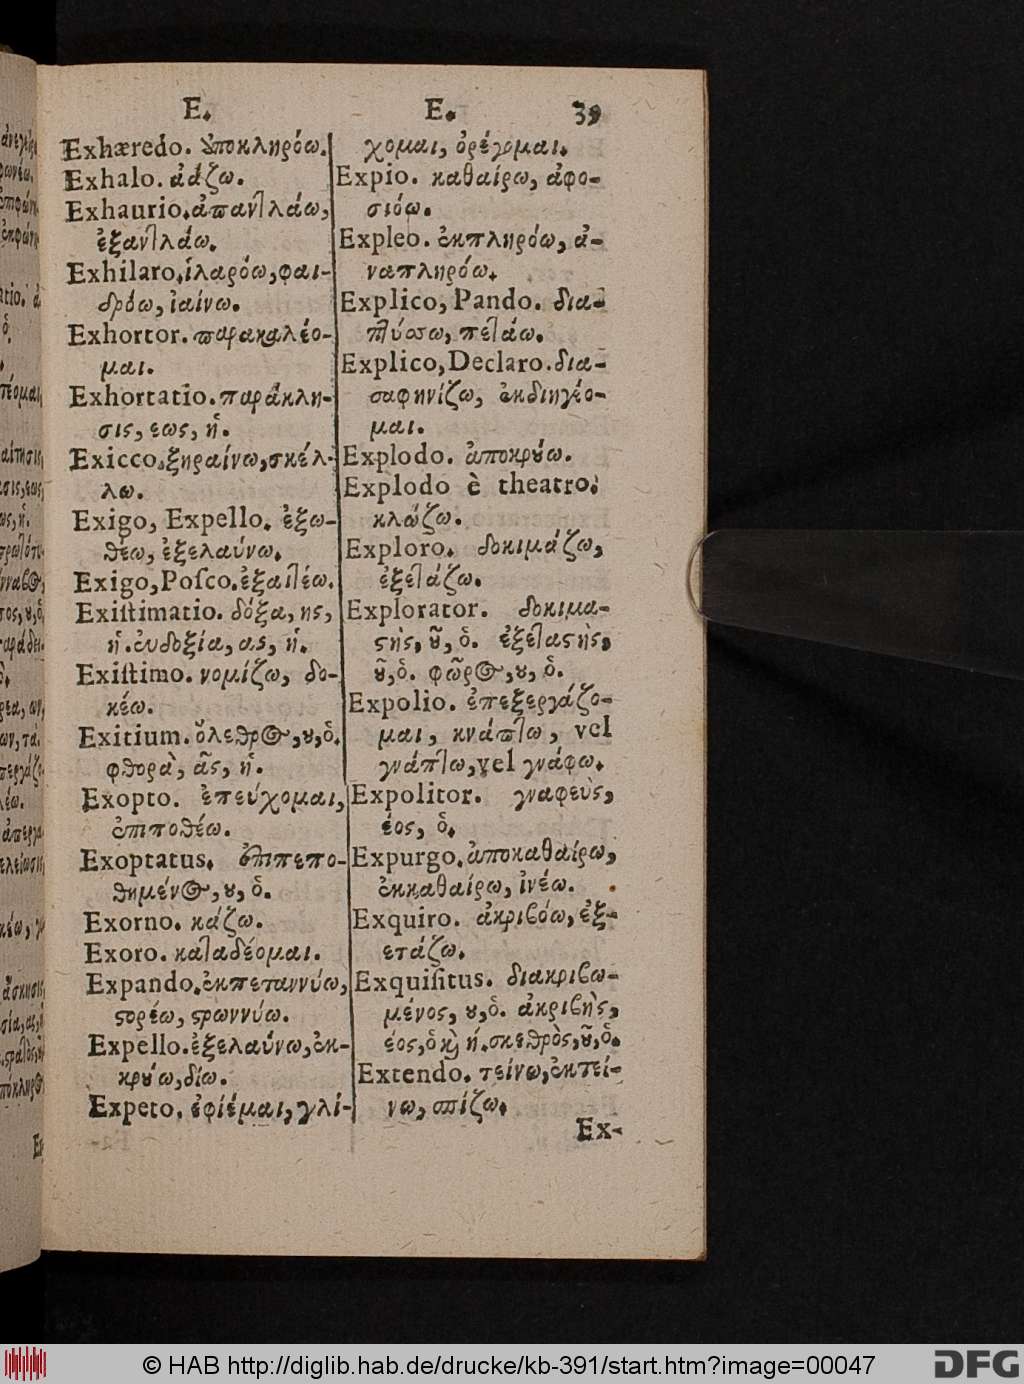 E. E. 39
Exhæredo. ὑποκληρόω.
Exhalo. ἀάζω.
Exhaurio. ἀπαντλάω,
ἐξαντλάω.
Exhilaro. ἱλαρόω, φαι-
δρόω, ἰαίνω.
Exhortor. παρακαλέο-
μαι.
Exhortatio. παράκλη-
σις, εως, ἡ.
Exicco. ξηραίνω, σκέλ-
λω.
Exigo, Expello. ἐξω-
θέω, ἐξελαύνω.
Exigo, Poſco. ἐξαιτέω.
Exiſtimatio. δόξα, ης,
ἡ. εὐδοξία, ας, ἡ.
Exiſtimo. νομίζω, δο-
κέω.
Exitium. ὄλεθρος, ου, ὁ.
φθορὰ, ᾶς, ἡ.
Exopto. ἐπεύχομαι,
ἐπιποθέω.
Exoptatus. ἐπιπεπο-
θημένος, ου, ὁ.
Exorno. κάζω.
Exoro. καταδέομαι.
Expando. ἐκπεταννύω,
στορέω, στρωννύω.
Expello. ἐξελαύνω, ἐκ-
κρούω, δίω.
Expeto. ἐφίεμαι, γλί-
χομαι, ὀρέγομαι.
Expio. καθαίρω, ἀφο-
σιόω.
Expleo. ἐκπληρόω, ἀ-
ναπληρόω.
Explico, Pando. δια-
πτύσσω, πετάω.
Explico, Declaro. δια-
σαφηνίζω, ἐκδιηγέο-
μαι.
Explodo. ἀποκρούω.
Explodo è theatro.
κλώζω.
Exploro. δοκιμάζω,
ἐξετάζω.
Explorator. δοκιμα-
στὴς, οῦ, ὁ. ἐξεταστὴς,
οῦ, ὁ. φῶρος, ου, ὁ.
Expolio. ἐπεξεργάζο-
μαι, κνάπτω, vel
γνάπτω, vel γνάφω.
Expolitor. γναφεὺς,
έος, ὁ.
Expurgo. ἀποκαθαίρω,
ἐκκαθαίρω, ἰνέω.
Exquiro. ἀκριβόω, ἐξ-
ετάζω.
Exquiſitus. διακριβω-
μένος, ου, ὁ. ἀκριβὴς,
έος, ὁ καὶ ἡ. σκεθρὸς, οῦ, ὁ.
Extendo. τείνω, ἐκτεί-
νω, σπίζω.
Ex-
© HAB http://diglib.hab.de/drucke/kb-391/start.htm?image=00047
DFG